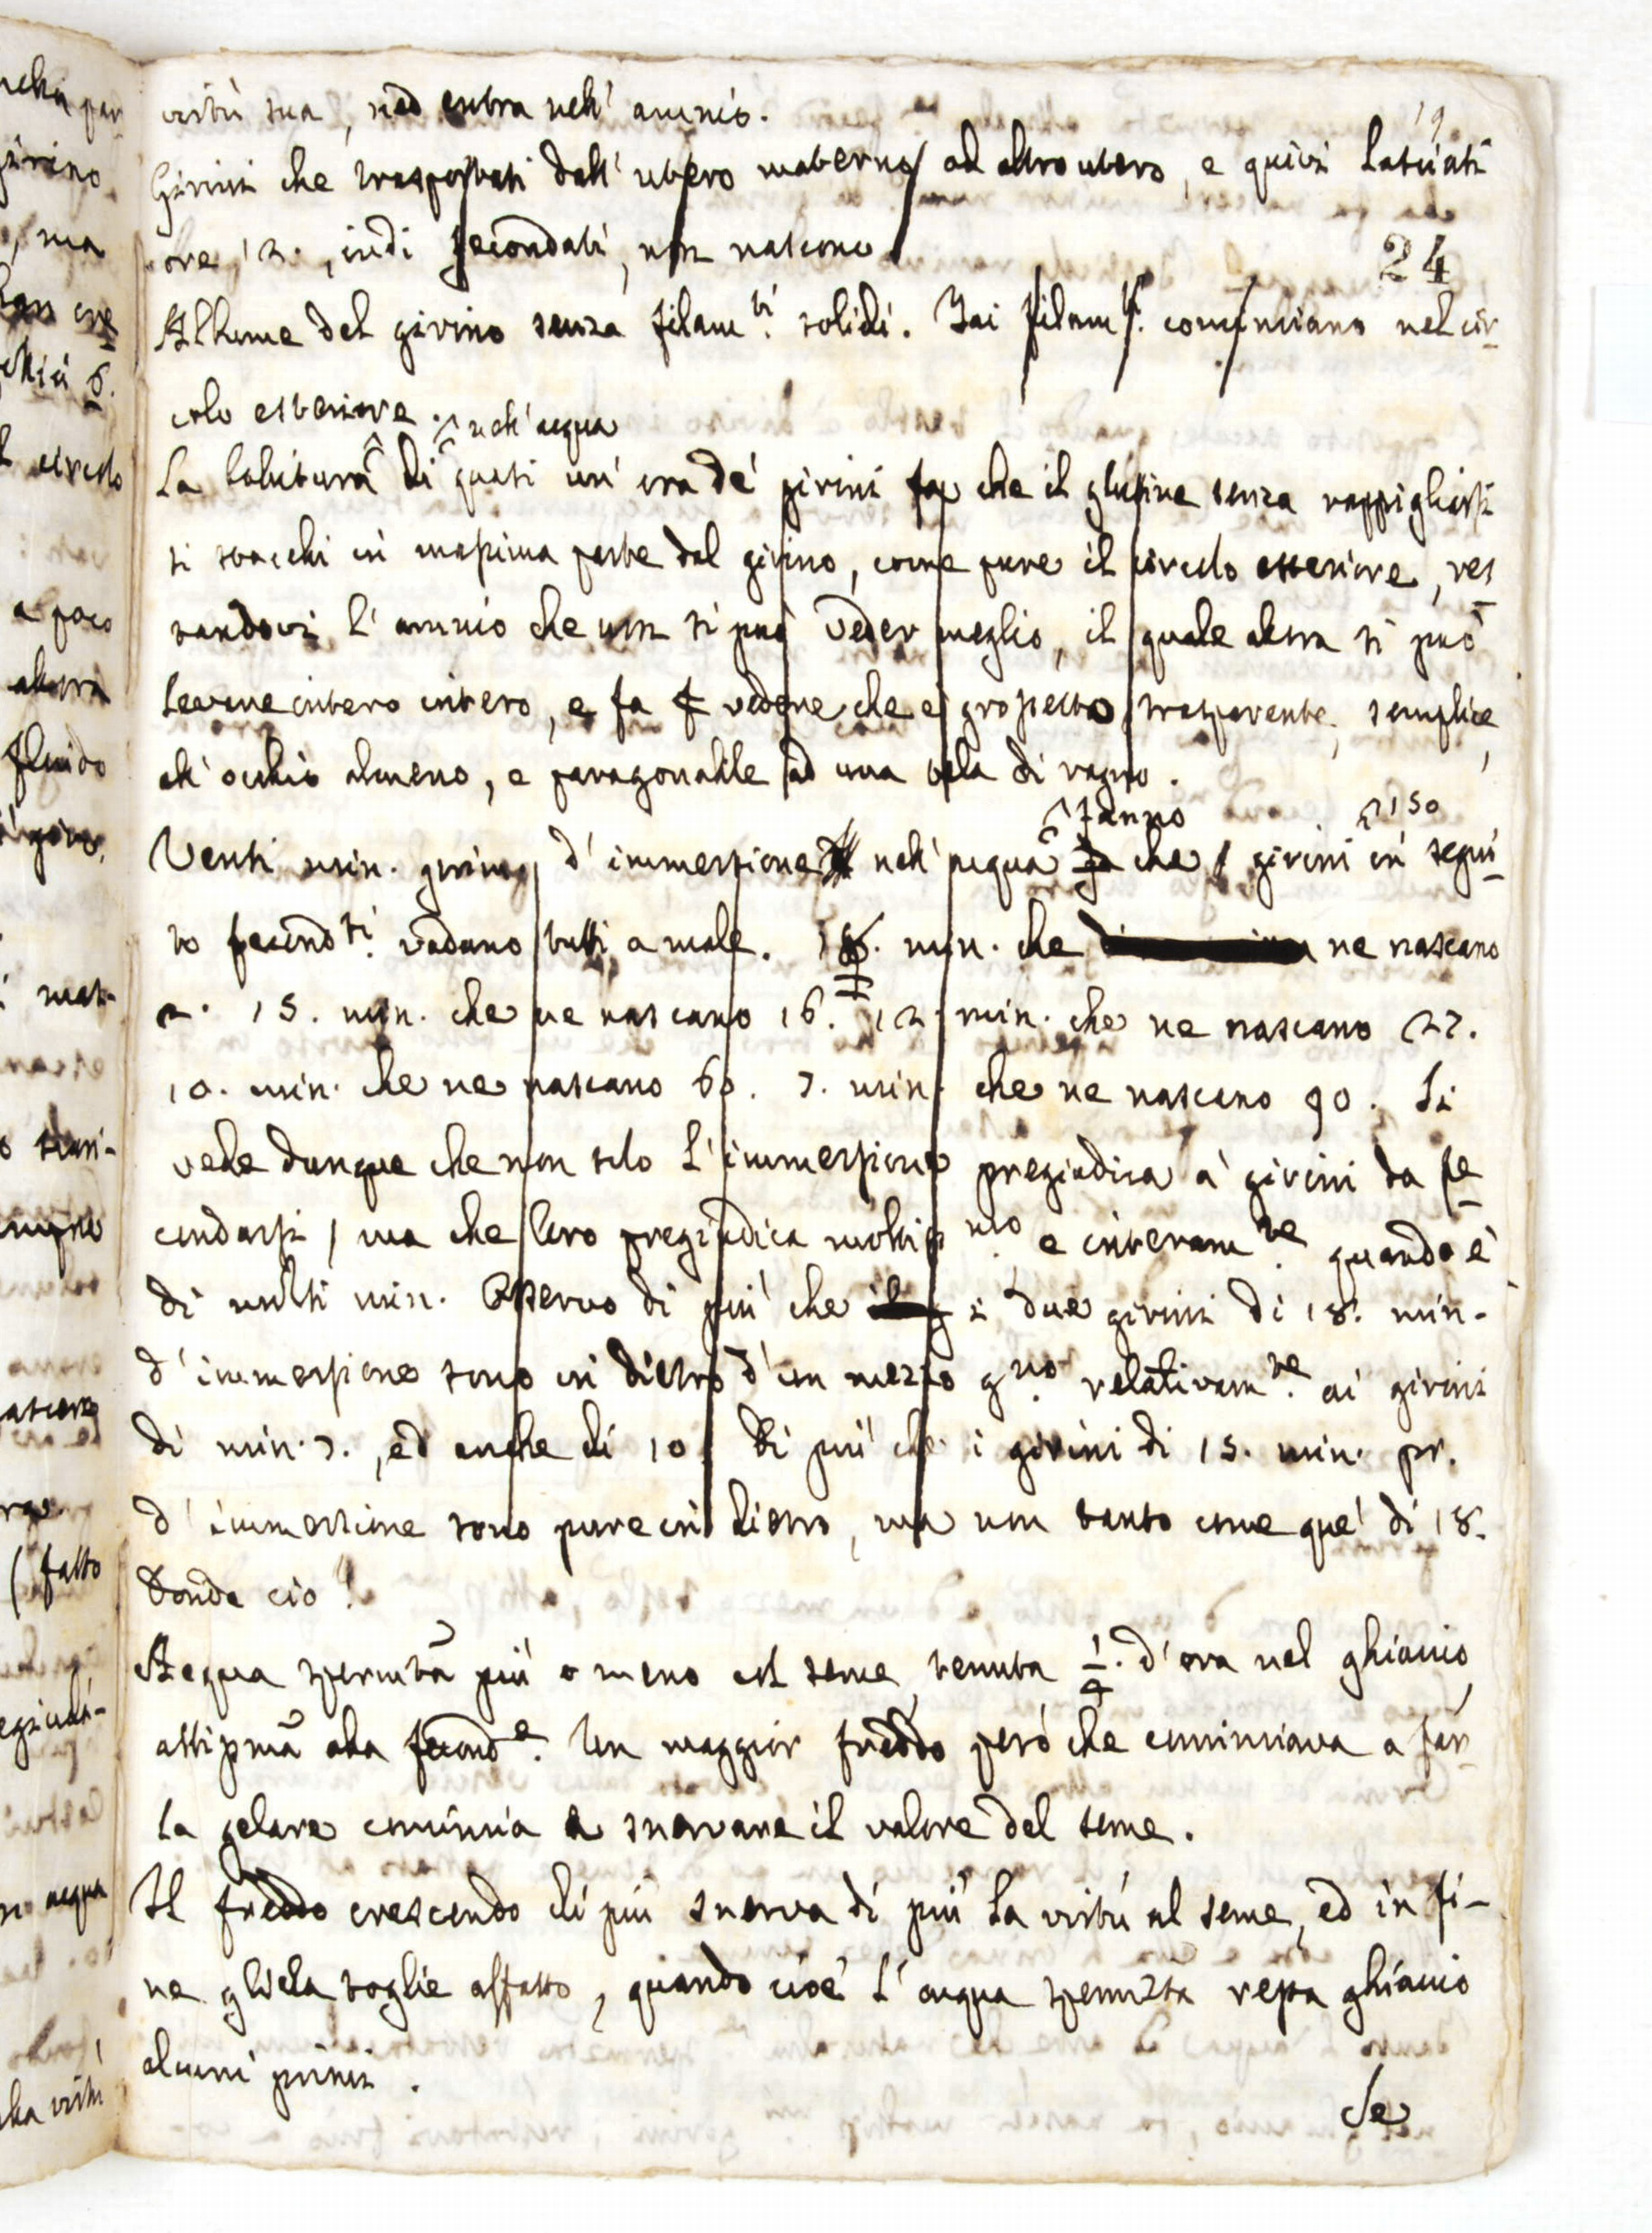 virtù sua, non entra nell' amnio.
19
Girini che trasportati dall' utero materno ad altro utero, e quivi lasciati
24
ore 12., indi fecondati, non nascono.
Albume del girino senza filam.ti solidi. Tai filam.ti cominciano nel cir-
colo esteriore.
nell' acqua
La bollitura di quasi un' ora de' girini fa che il glutine senza rappigliarsi
si stacchi in massima parte dal girino, come pure il circolo esteriore, res-
tandovi l' amnio che non si può veder meglio, il quale allora si può
levare intero intero, e fa vedere che è grossetto, trasparente, semplice,
all' occhio almeno, e paragonabile ad una tela di ragno.
fanno 150
Venti min. primi d' immersione nell' acqua fa che i girini in segui-
to fecond.ti vadano tutti a male. 18. min. che ne nascano
2. 15. min. che ne nascano 16. 12. min. che ne nascano 27.
10. min. che ne nascano 60. 7. min. che ne nascano 90. Si
vede dunque che non solo l' immersione pregiudica a' girini da fe-
condarsi, ma che loro pregiudica moltiss.mo e interam.te quando è
di molti min. Osservo di più che i due girini di 18. min.
d' immersione sono in dietro d' un mezzo g.no relativam.te ai girini
di min. 7., ed anche di 10. Di più che i girini di 15. min. pr.
d' immersione sono pure in dietro, ma non tanto come que' di 18.
Donde ciò!
Acqua spermata più o meno col seme, tenuta 1/4. d' ora nel ghiaccio,
attissima alla fecond.e. Un maggior freddo però che cominciava a far-
la gelare comincia a snervare il valore del seme.
Il freddo crescendo di più snerva di più la virtù al seme, ed in fi-
ne gliela toglie affatto, quando cioè l' acqua spermata resta ghiaccio
alcuni primi.
Se